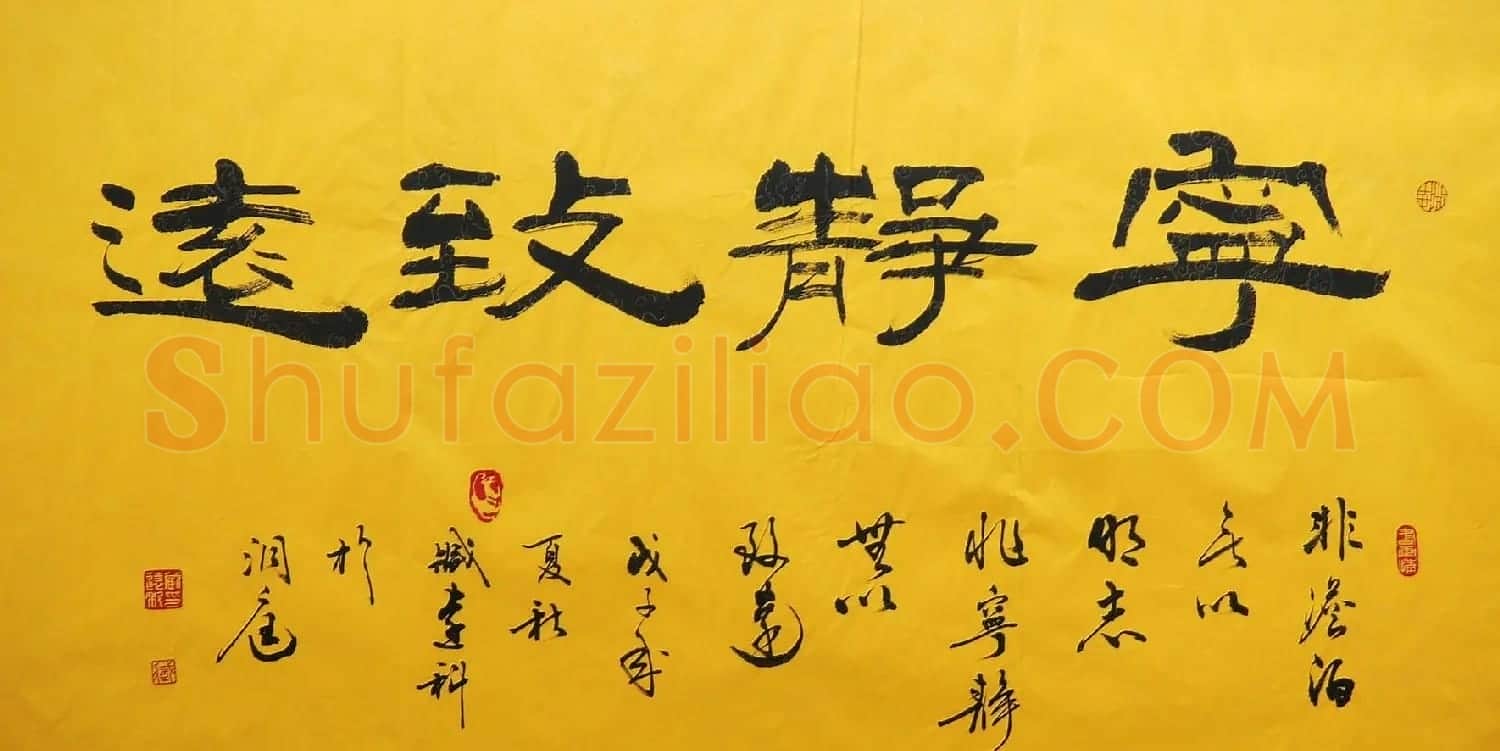 寧靜致遠
Shufaziliao.COM
非澹泊
无以
明志
非寧靜
無以
致遠
戊子年
夏秋
臧科
於
洞庭